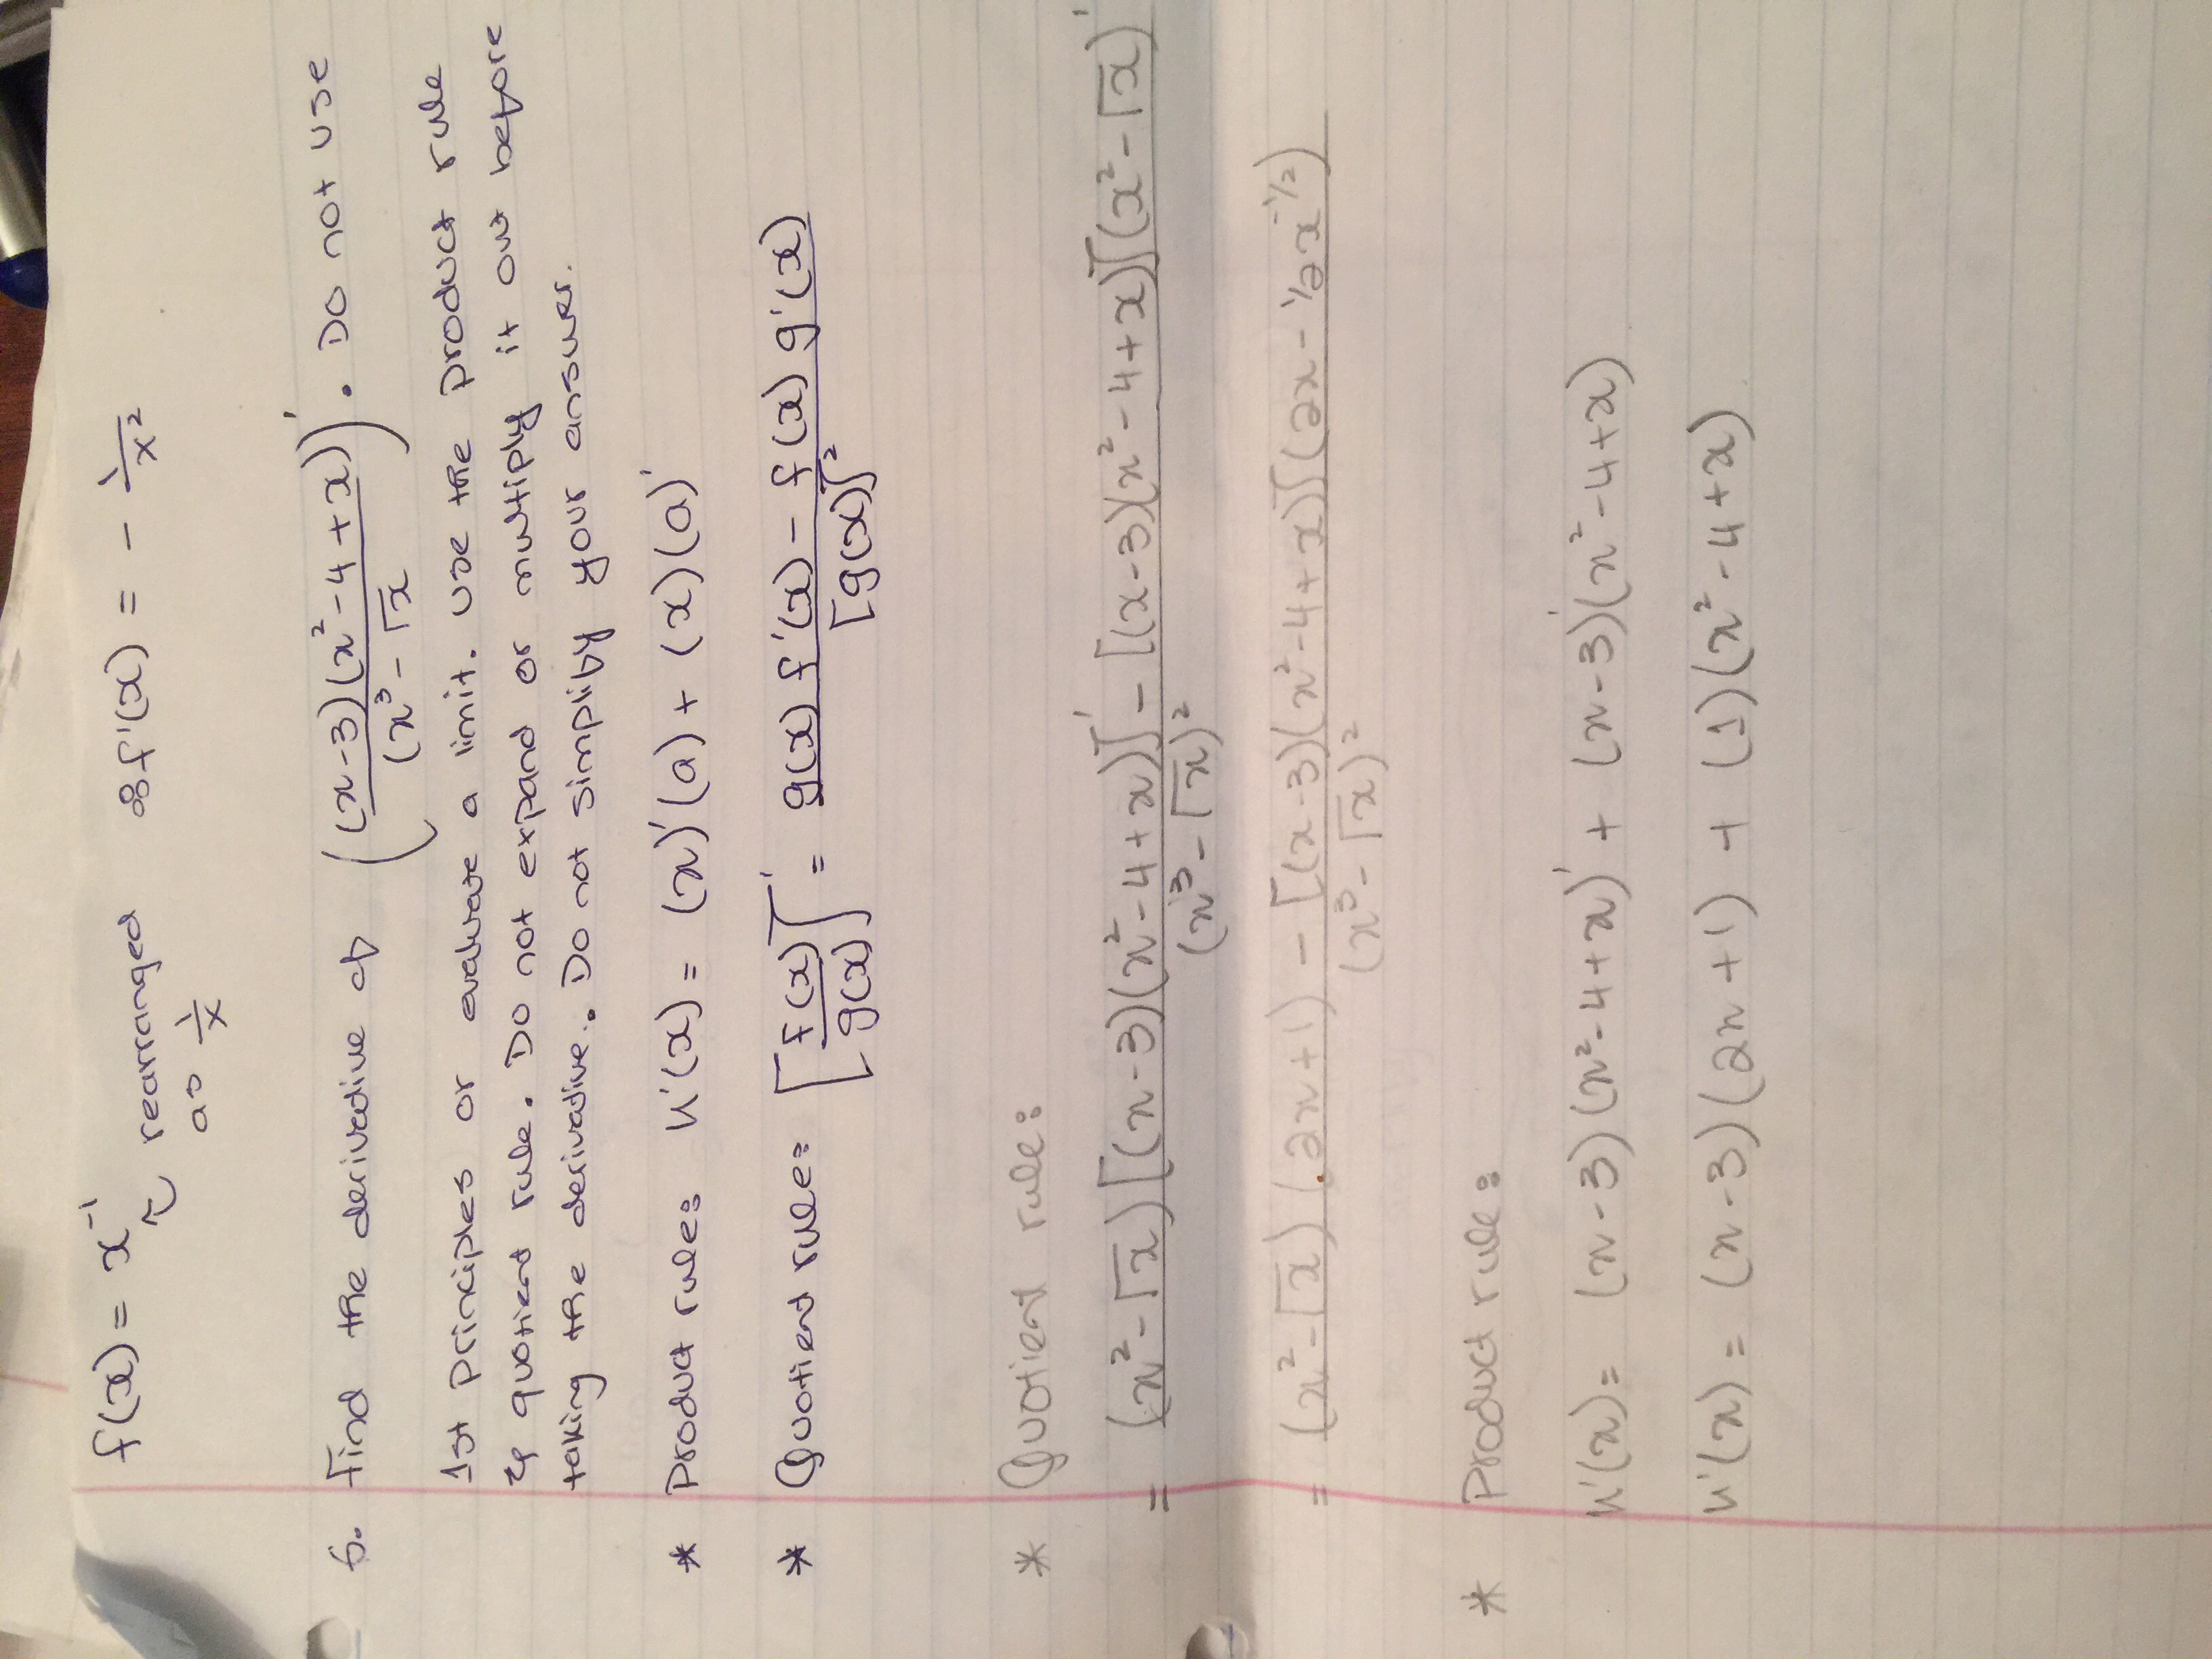 f(x) = x⁻¹ ∴ f'(x) = - 1/x²
↖ rearranged
as 1/x
6. Find the derivative of ((x-3)(x²-4+x)/(x³-√x))'. Do not use
1st principles or evaluate a limit. Use the product rule
& quotient rule. Do not expand or multiply it out before
taking the derivative. Do not simplify your answer.
* Product rule: h'(x) = (x)'(a) + (x)(a)'
* Quotient rule: [f(x)/g(x)]' = g(x) f'(x) - f(x) g'(x) / [g(x)]²
* Quotient rule:
= (x²-√x)[(x-3)(x²-4+x)]' - [(x-3)(x²-4+x)](x²-√x)' / (x³-√x)²
= (x²-√x)(2x+1) - [(x-3)(x²-4+x)](2x-½x^-½) / (x³-√x)²
* Product rule:
h'(x) = (x-3)(x²-4+x)' + (x-3)'(x²-4+x)
h'(x) = (x-3)(2x+1) + (1)(x²-4+x)